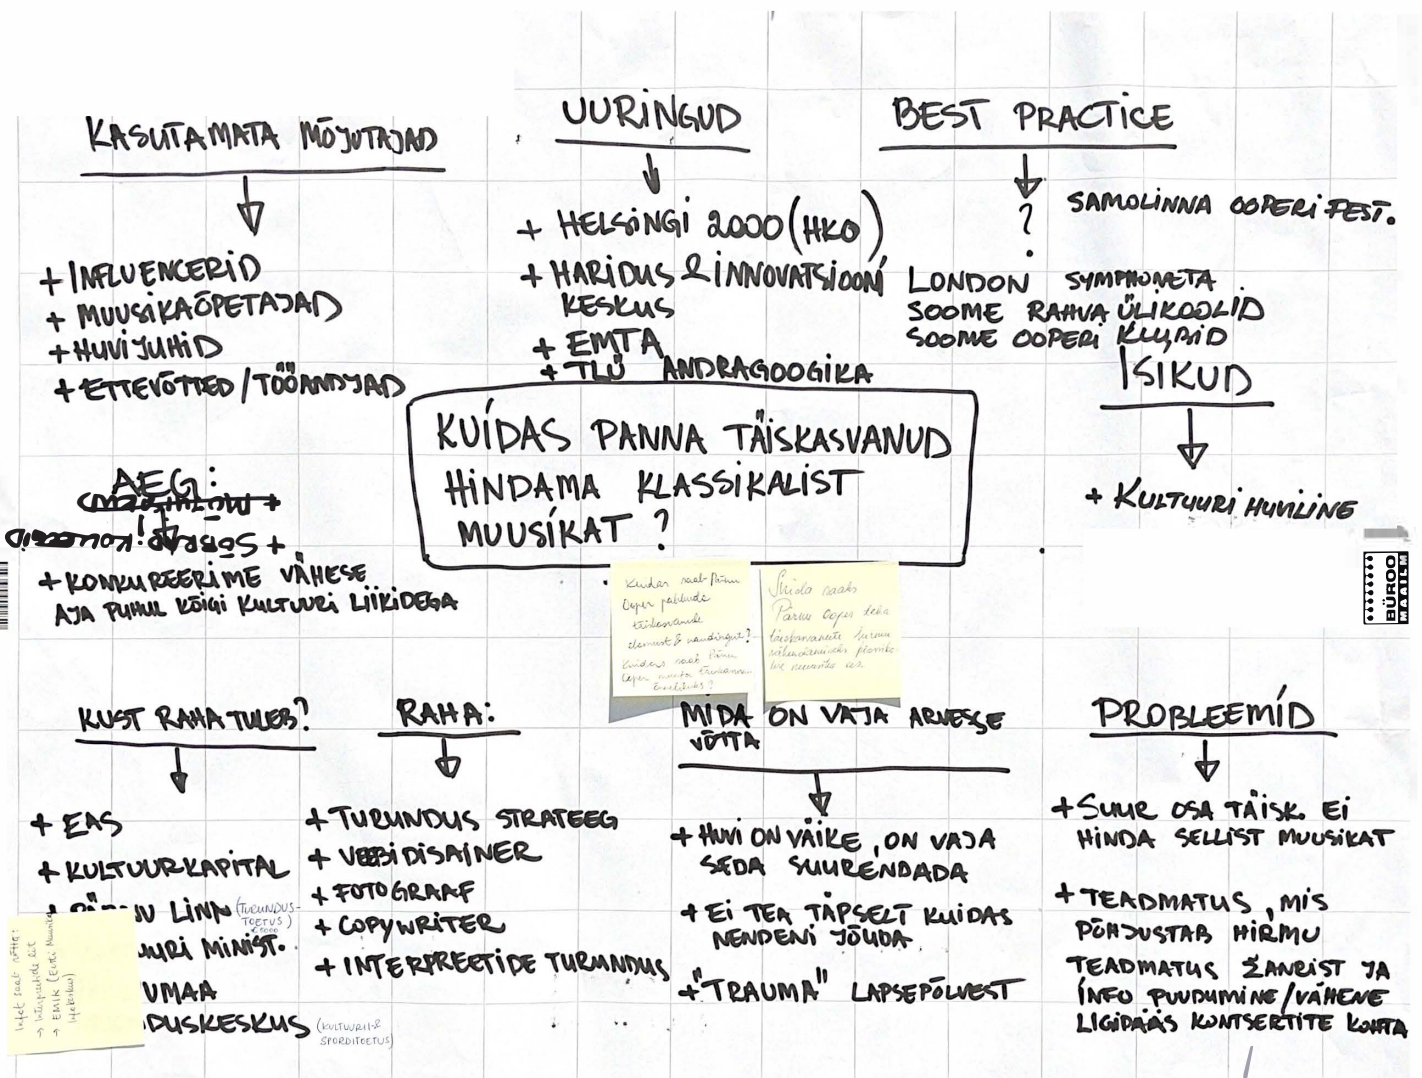 KASUTAMATA MÕJUTAJAD
+ INFLUENCERID
+ MUUSIKAÕPETAJAD
+ HUVIJUHID
+ ETTEVÕTTED / TÖÖANDJAD
UURINGUD
+ HELSINGI 2000 (HKO)
+ HARIDUS & INNOVATSIOONI
KESKUS
+ EMTA
+ TLÜ ANDRAGOOGIKA
BEST PRACTICE
?
SAMOLINNA OOPERI FEST.
LONDON SYMPHONETA
SOOME RAHVA ÜLIKOOLID
SOOME OOPERI KLUBID
ISIKUD
+ KULTUURI HUVILINE
KUIDAS PANNA TÄISKASVANUD
HINDAMA KLASSIKALIST
MUUSIKAT ?
AEG:
+ SÕBRAD! KOLLEEGID
+ KONKUREERIME VÄHESE
AJA PUHUL KÕIGI KULTUURI LIIKIDEGA
BÜROO
MAAILM
Kuidas saab Pärnu
Ooper pakkuda
täiskasvanule
elamust & naudingut?
Kuidas saab Pärnu
Ooper muuta
Mida saaks
Pärnu Ooper teha
täiskasvanute hirmu
vähendamiseks
KUST RAHA TULEB?
+ EAS
+ KULTUURKAPITAL
LINN (TURUNDUS-
TOETUS)
€5000
MINIST.
UMAA
DUSKESKUS (KULTUURI-&
SPORDITOETUS)
Infot saab võtta:
→ Interpreetide Liit
→ EMIK (Eesti Muusika
Infokeskus)
RAHA:
+ TURUNDUS STRATEEG
+ VEEBIDISAINER
+ FOTOGRAAF
+ COPYWRITER
+ INTERPREETIDE TURUNDUS
MIDA ON VAJA ARVESSE
VÕTTA
+ HUVI ON VÄIKE, ON VAJA
SEDA SUURENDADA
+ EI TEA TÄPSELT KUIDAS
NENDENI JÕUDA
+ "TRAUMA" LAPSEPÕLVEST
PROBLEEMID
+ SUUR OSA TÄISK. EI
HINDA SELLIST MUUSIKAT
+ TEADMATUS, MIS
PÕHJUSTAB HIRMU
TEADMATUS ŽANRIST JA
INFO PUUDUMINE/VÄHENE
LIGIDÄÄS KONTSERTITE KOHTA